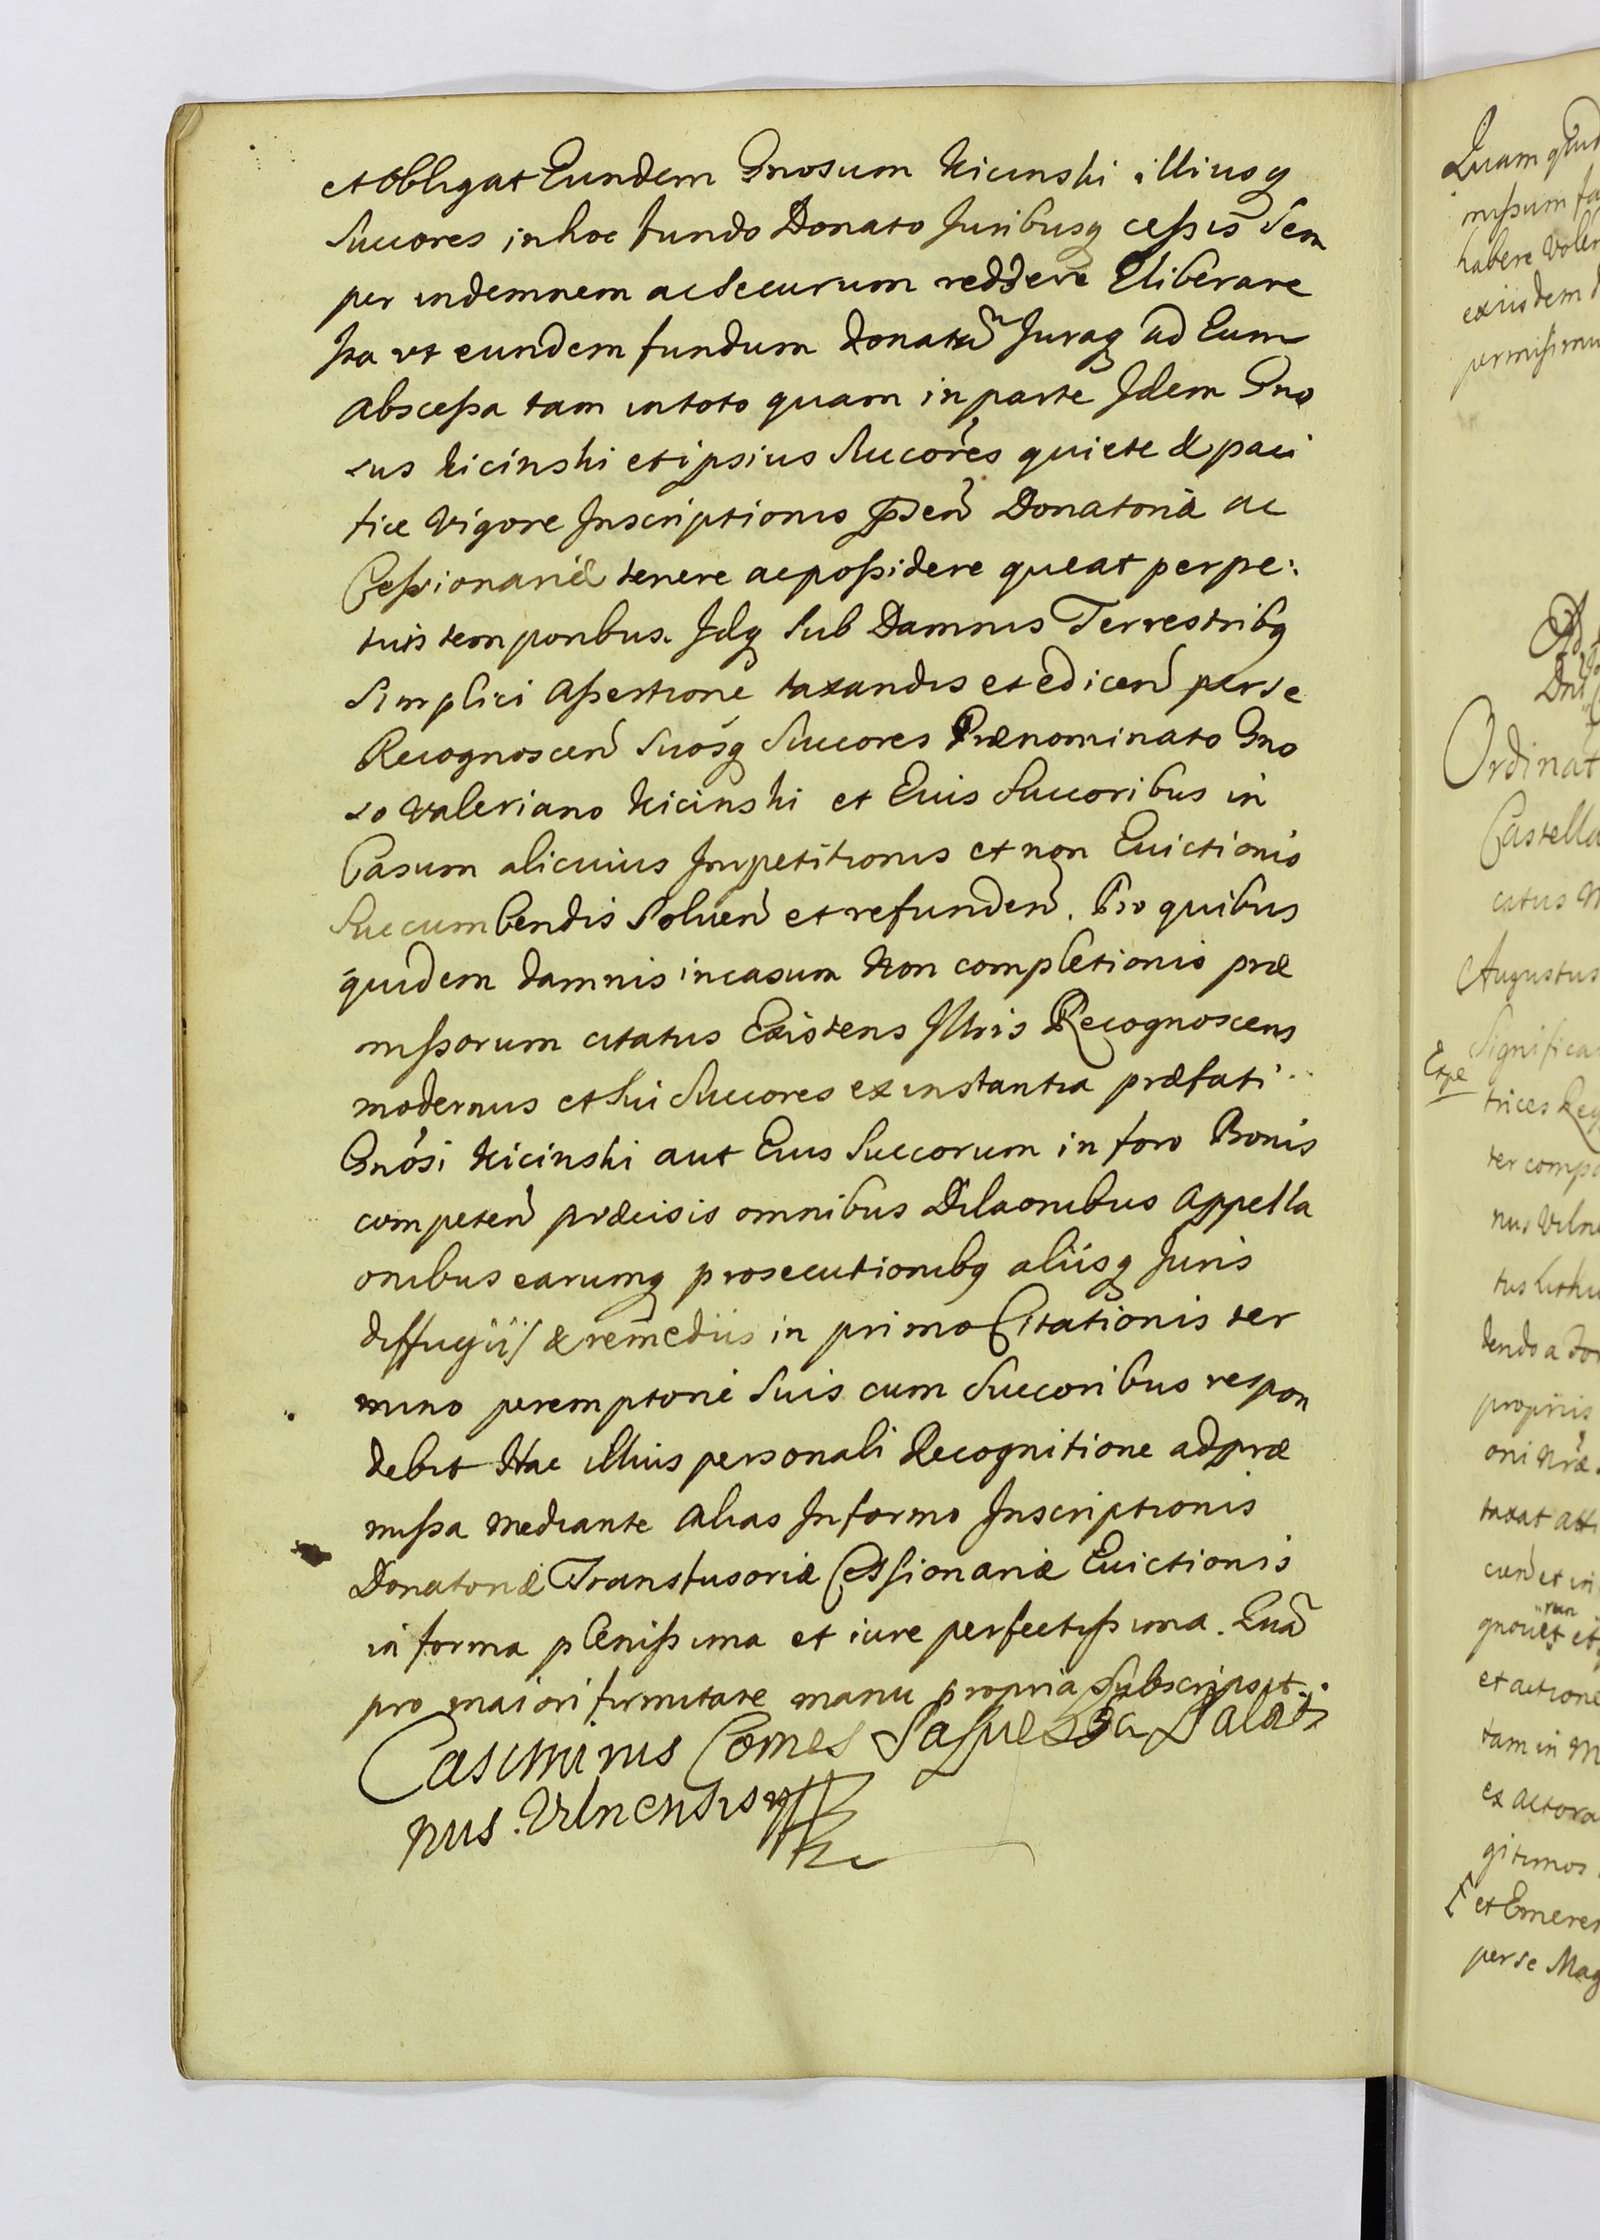 et obligat Eundem Gnosum Kicinski illiusq
Succores in hoc fundo Donato Juribusq cessis sem
per indemnem ac Securum reddere Eliberare
Ita vt eundem fundum donatũ Juraq ad Eum
abscessa tam in toto quam in parte Idem Gno
sus Kicinski et ipsius Succores quiete & paci
fice Vigore Inscriptionis Donatoriæ ac
Cessionariæ tenere ac possidere queat perpe:
tuis temporibus. Idq Sub Damnis Terrestribq
Simplici Assertione taxandis et edicen per se
Recognoscen Suosq Succores Prænominato Gno
so Valeriano Kicinski et Eius Succoribus in
Casum alicuius Impetitionis et non Euictionis
Succumbendis Soluen et refunden. Pro quibus
quidem damnis in casum Non completionis præ
missorum citatus Existens Illris Recognoscens
modernus et Sui Succores ex instantia præfati
Gnosi Kicinski aut Eius Succorum in foro Bonis
competen præcisis omnibus Dilaonibus Appella
onibus earumq prosecutionibq aliisq Juris
diffugiis & remediis in primo Citationis ter
mino peremptorie Suis cum Succoribus respon
debit Hac illius personali Recognitione ad præ
missa mediante alias In forma Inscriptionis
Donatoriæ Transfusoriæ Cessionariæ Euictionis
in forma plenissima et iure perfectissima. Quã
pro maiori firmitate manu propria Subscripsit.
Casimirus Comes Sapieha Palati
nus Vilnensis
Quam
missum
habere
exiisdem
permissimus
Ad
Dni
Ordinat
Castella
catus
Augustus
Significa
Etpe
trices Reg
ter compa
nus Vilne
tus Lithu
dendo a
propriis
oni Nræ
taxat
cund et in
gnouit et
et actione
tam in M
ex actora
gitimos
et Emere
per se Mag